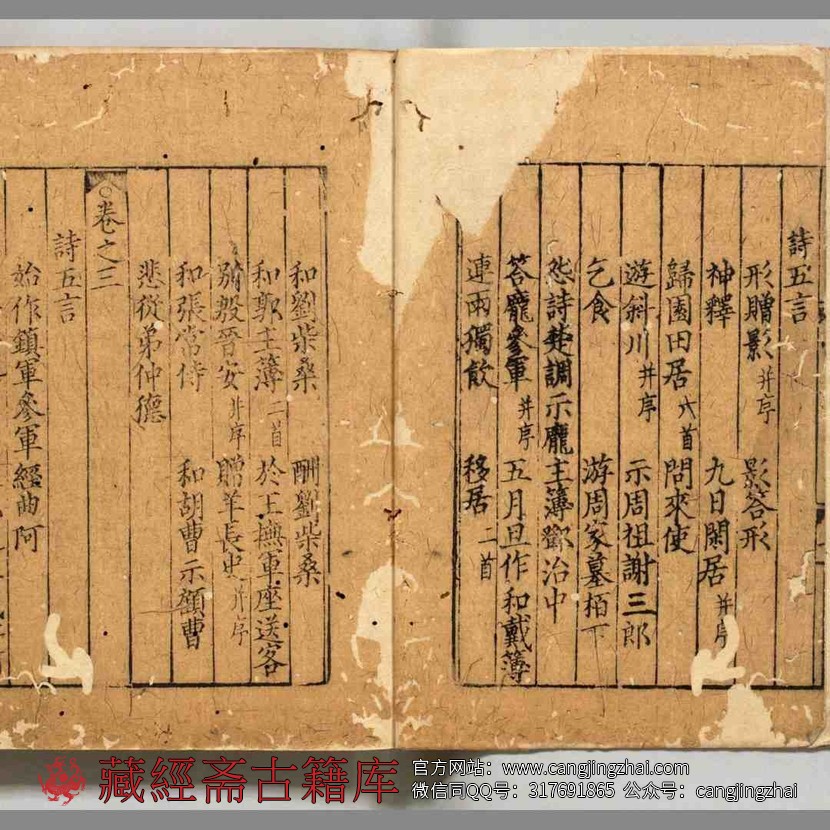 詩五言
形贈影 并序 影答形
神釋 九日閑居 并序
歸園田居 六首 問來使
遊斜川 并序 示周祖謝三郎
乞食 游周家墓栢下
怨詩楚調示龐主簿鄧治中
答龐參軍 并序 五月旦作和戴簿
連雨獨飲 移居 二首
和劉柴桑 酬劉柴桑
和郭主簿 二首 於王撫軍座送客
別殷晉安 并序 贈羊長史 并序
和張常侍 和胡曹示顧曹
悲從弟仲德
卷之三
詩五言
始作鎮軍參軍經曲阿
藏經斋古籍库
官方网站：www.cangjingzhai.com
微信同QQ号：317691865 公众号：cangjingzhai